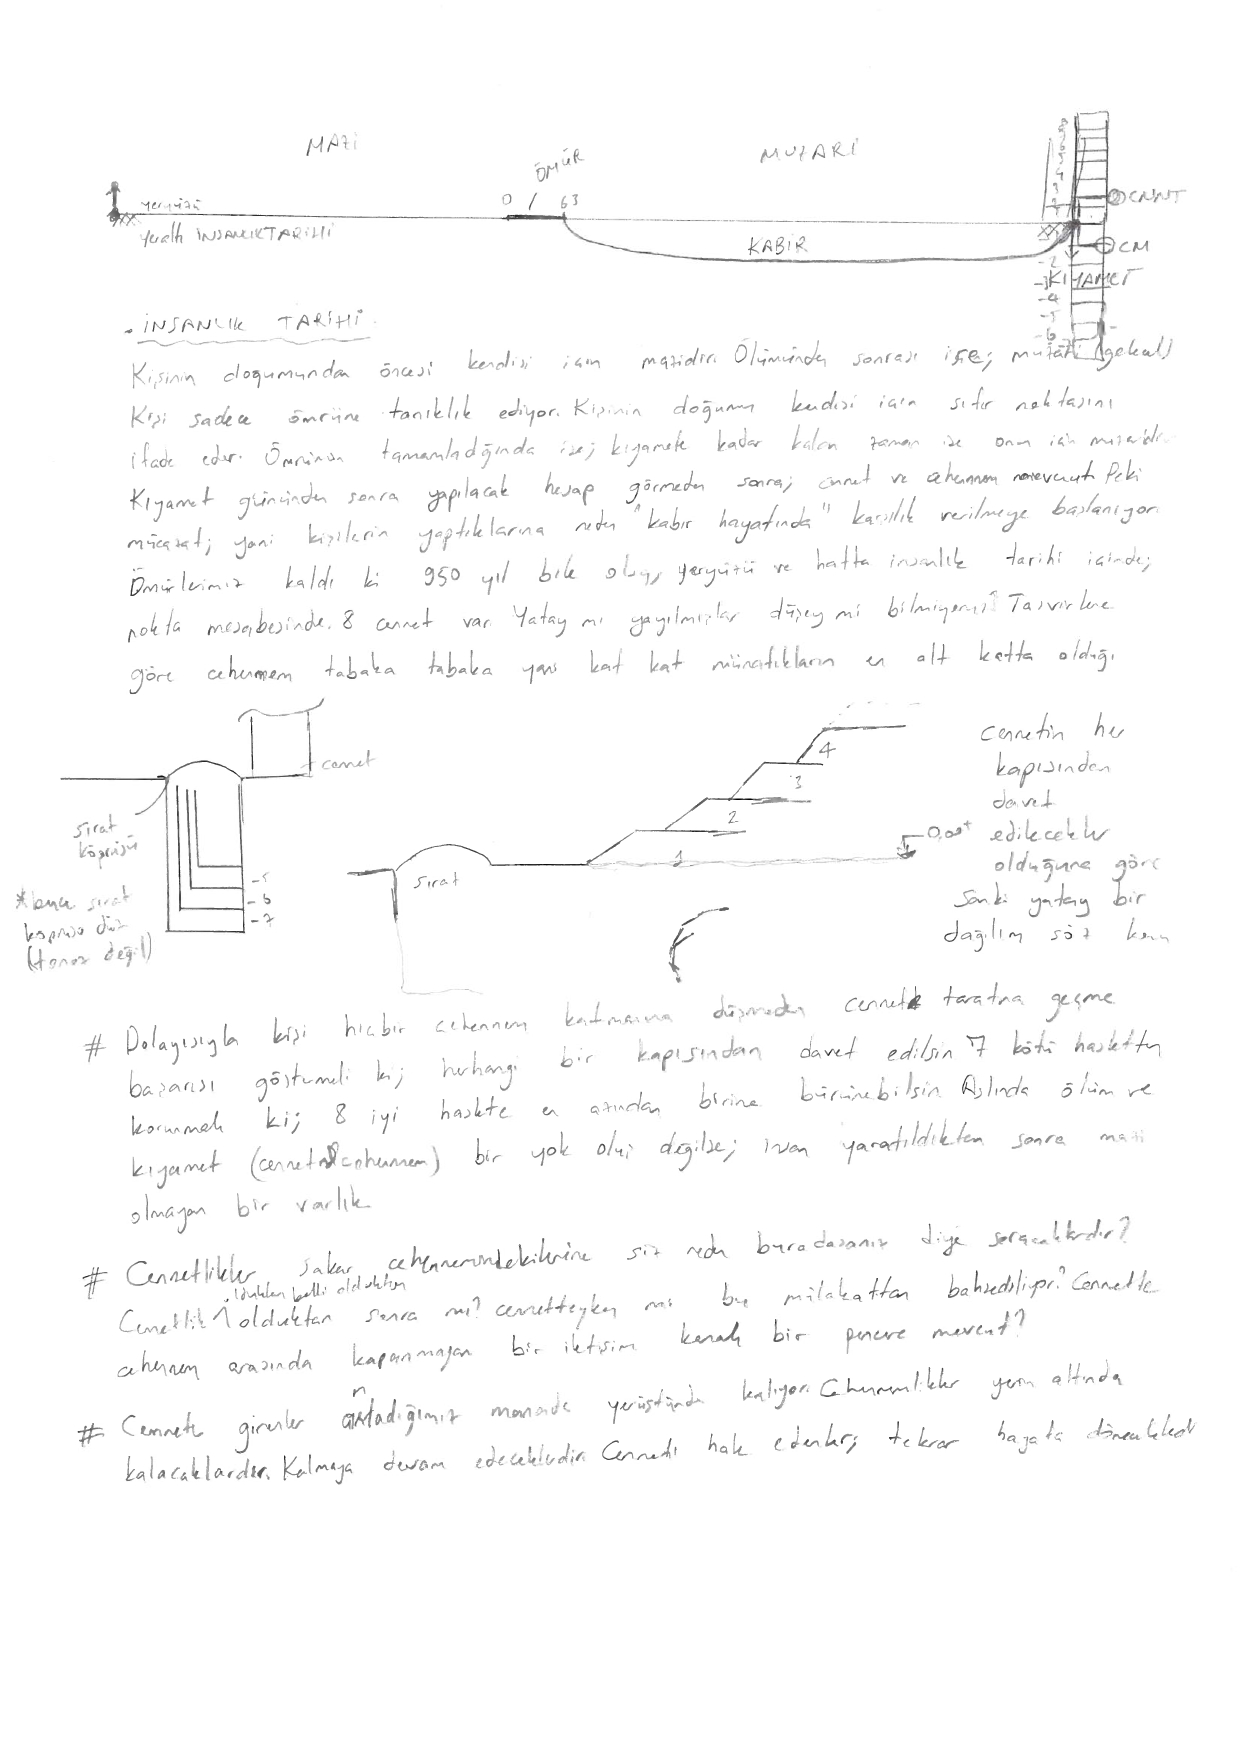 MAZİ
ÖMÜR
MUZARİ
0 / 63
yeryüzü
yeraltı İNSANLIK TARİHİ
KABİR
CNNT
CM
KIYAMET
-2
-3
-4
-5
-6
-7
. İNSANLIK TARİHİ.
Kişinin doğumundan öncesi kendisi için mazidir. Ölümünden sonrası ise; muzari (gelecek)
Kişi sadece ömrüne tanıklık ediyor. Kişinin doğumu kendisi için sıfır noktasını
ifade eder. Ömrünün tamamladığında ise; kıyamete kadar kalan zaman ise onun için muzaridir
Kıyamet gününden sonra yapılacak hesap görmeden sonra; cennet ve cehennem mevcut. Peki
mücazat; yani kişilerin yaptıklarına neden "kabir hayatında" karşılık verilmeye başlanıyor.
Ömürlerimiz kaldı ki 950 yıl bile olsa, yeryüzü ve hatta insanlık tarihi içinde;
nokta mesabesinde. 8 cennet var. Yatay mı yayılmışlar düşey mi bilmiyoruz? Tasvirlere
göre cehennem tabaka tabaka yani kat kat münafıkların en alt katta olduğı
cennet
sırat
köprüsü
-5
-6
-7
*bence sırat
köprüsü düz
(tonoz değil)
sırat
1
2
3
4
0,00+
Cennetin her
kapısından
davet
edilecekler
olduğuna göre
sanki yatay bir
dağılım söz konu
# Dolayısıyla kişi hiçbir cehennem katmanına düşmeden cennet tarafına geçme
başarısı göstermeli ki; herhangi bir kapısından davet edilsin 7 kötü hasletten
korunmalı ki; 8 iyi haslete en azından birine bürünebilsin. Aslında ölüm ve
kıyamet (cennet & cehennem) bir yok oluş değilse; insan yaratıldıktan sonra mazi
olmayan bir varlık
# Cennetlikler sakar cehennemindekilerine siz neden buradasınız diye soracaklardır?
oldukları belli olduktan
Cennetlik olduktan sonra mı? cennetteyken mi bu mülakattan bahsediliyor? Cennetle
cehennem arasında kapanmayan bir iletişim kanalı bir pencere mevcut?
# Cennete girenler anladığımız manada yerüstünde kalıyor. Cehennemlikler yerin altında
kalacaklardır. Kalmaya devam edeceklerdir. Cenneti hak edenler; tekrar hayata dönecekledi